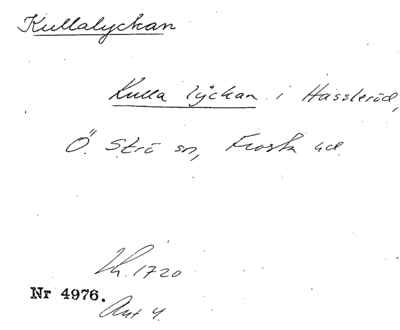 Kullalyckan
Kulla lÿckan i Hassleröd,
Ö. Strö sn, Frosta hd.
Lh. 1720
Nr 4976.
Ant 4.